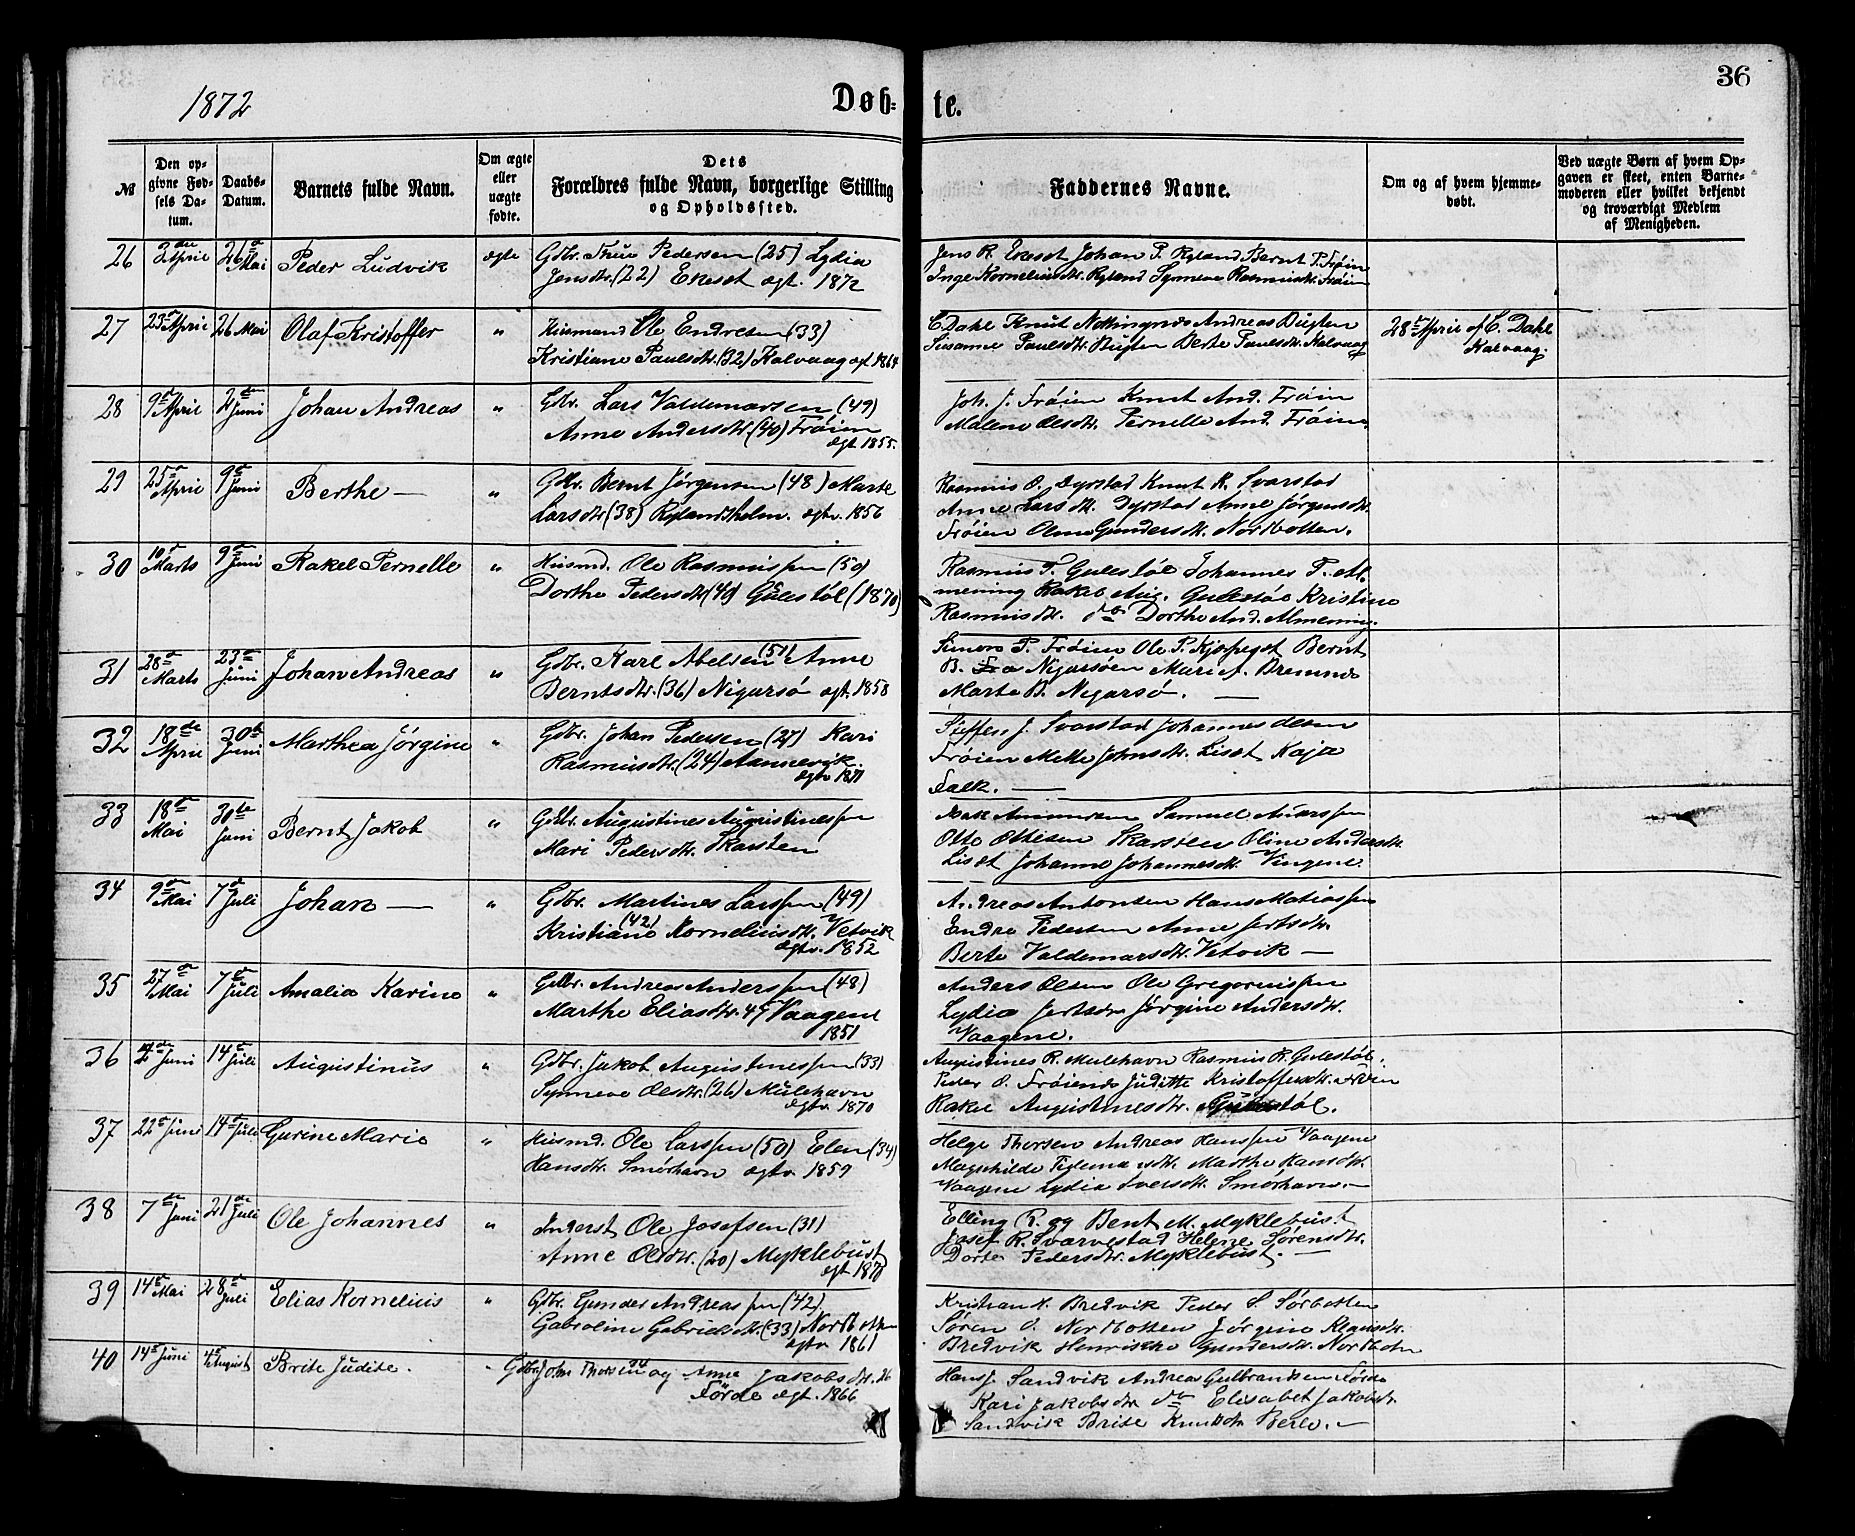 1872
Døb-
te.
36
№
Den opgivne Fødsels Datum.
Daabs-Datum.
Barnets fulde Navn.
Om ægte eller uægte fødte.
Dets Forældres fulde Navn, borgerlige Stilling og Opholdssted.
Faddernes Navne.
Om og af hvem hjemmedøbt.
Ved uægte Børn af hvem Opgaven er skeet, enten Barnemoderen eller hvilket bekjendt og troværdigt Medlem af Menigheden.
26 April 26 Mai Peder Ludvik ægte Gdbr. Thue Pedersen (25) Lydia
Jensdtr. (22) Ekeset ægt. 1872
Jens R. Ekeset Johan P. Ryland Bernt P. Frøien
Inge Korneliusdtr. Ryland Synneve Rasmusdtr. Frøien
27 23 April 26 Mai Olaf Kristoffer " Husmand Ole Endresen (33)
Kristiane Paulsdtr. (32) Kalvaag ægt 1864
C. Dahl Knut Andreas Bugten
Susanne Paulsdtr. Bugten Berte Paulsdtr. Kalvaag
28 April af C. Dahl
Kalvaag.
28 9 April 2 Juni Johan Andreas " Gbr. Lars Valdemarsen (49)
Anne Andersdtr. (40) Frøien
ægt 1855.
Joh. J. Frøien Knut And. Frøien
Malene Olsdtr. Pernelle And. Frøien
29 25 April 9 Juni Berthe — " Gdbr. Bernt Jørgensen (48) Marte
Larsdtr (38) Rylandsholm. ægtv. 1856
Rasmus O. Dyrstad Knut R. Svarstad
Anne Larsdtr. Dyrstad Anne Jørgensdtr.
Frøien Gundersdtr. Nordbotten.
30 10 Marts 9 Juni Rakel Pernelle " Husmd. Ole Rasmussen (50)
Dorthe Pedersdtr (40) Gulestøl (1870)
Rasmus T. Gulestøl Johannes T. Al-
mening Rakel Aug. Gulestøl Kristine
Rasmusdtr. do Dorthe And. Almening.
31 28 Marts 23 Juni Johan Andreas " Gdbr. Karl Abelsen (51) Anne
Berntsdtr. (36) Nigarsø ægt. 1858
P. Frøien Ole P. Bernt
B. Nigarsøen Marie
Marte B. Nigarsø. —
32 18 April 30 Juni Marthea Jørgine " Gdbr. Johan Pedersen (27) Kari
Rasmusdtr. (24) Aannevik.
ægtv 1871
Steffen J. Svarstad Johannes Olsen
Frøien Mette Johnsdtr. Liset Kaja
Falk. —
33 18 Mai 30te Juni Bernt Jakob " Gdbr. Augustines Augustinessen
Mari Pedersdtr. Skarsten
Samuel
Otto Ottesen Skarsten Oline Andersdtr.
Liset Johanne Johannesdtr. Vingene
34 9 Mai 7 Juli Johan — " Gdbr. Martines Larssen (49)
Kristiane (42) Korneliusdtr. Vetvik
ægtv. 1852
Andreas Antonsen Hans Matiassen
Endre Pedersen Anne
Berte Valdemarsdtr. Vetvik —
35 27 Mai 7 Juli Amalia Karine " Gdbr. Andreas Anderssen (48)
Marthe Eliasdtr. Vaagene
1851
Anders Olsen Ole Gregoriussen
Lydia Jørgine Andersdtr.
Vaagene.
36 Juni 14 Juli Augustinus " Gdbr. Jakob Augustinessen (33)
Synneve Olsdtr. (26) Mulehavn
ægtv. 1870
Augustines R. Mulehavn Rasmus R. Gulestøl.
Peder O. Juditte Kristoffersdtr. Frøien
Rakel Augustinesdtr. Gulestøl.
37 22 Juni 14 Juli Gurine Marie " Husmd. Ole Larssen (50) Elen (34)
Hansdtr. Smørhavn ægtv 1859
Helge Thorsen Andreas Hanssen Vaagene
Magnhilde Marthe Hansdtr.
Vaagene Lydia Iversdtr. Smørhavn. —
38 7 Juni 21 Juli Ole Johannes " Inderst Ole Josefsen (31)
Anne Olsdtr. (20) Myklebust
ægt 1871
Elling R. og Bent M. Myklebust
Josef R. Svarvestad Helene Sørensdtr.
Dorte Pedersdtr. Myklebust. —
39 14 Mai 28 Juli Elias Kornelius " Gdbr. Gunder Andreassen (42)
Gabroline Gabrielsdtr. (33) Nordbotten
ægtv 1861
Kristian N. Bredvik Peder S. Sørbotten
Søren O. Nordbotten Jørgine
Bredvik Henrikke Gundersdtr. Nordbotn
40 14 Juni 4 August Brite Judite. " Gdbr. John Thorsen og Anne Jakobsdtr. 26
Førde ægt. 1866
Hans J. Sandvik Andreas Gulbrandsen Førde
Kari Jakobsdtr do Elisabet Jakobsdtr.
Sandvik Brite Knutsdtr Berle. —